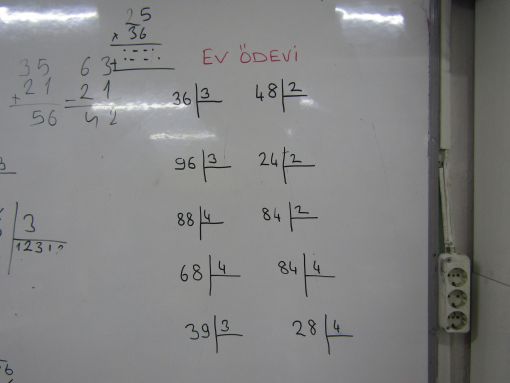 25
× 36
35
+ 21
56
63
- 21
42
3
12312
EV ÖDEVİ
36 3
48 2
96 3
24 2
88 4
84 2
68 4
84 4
39 3
28 4